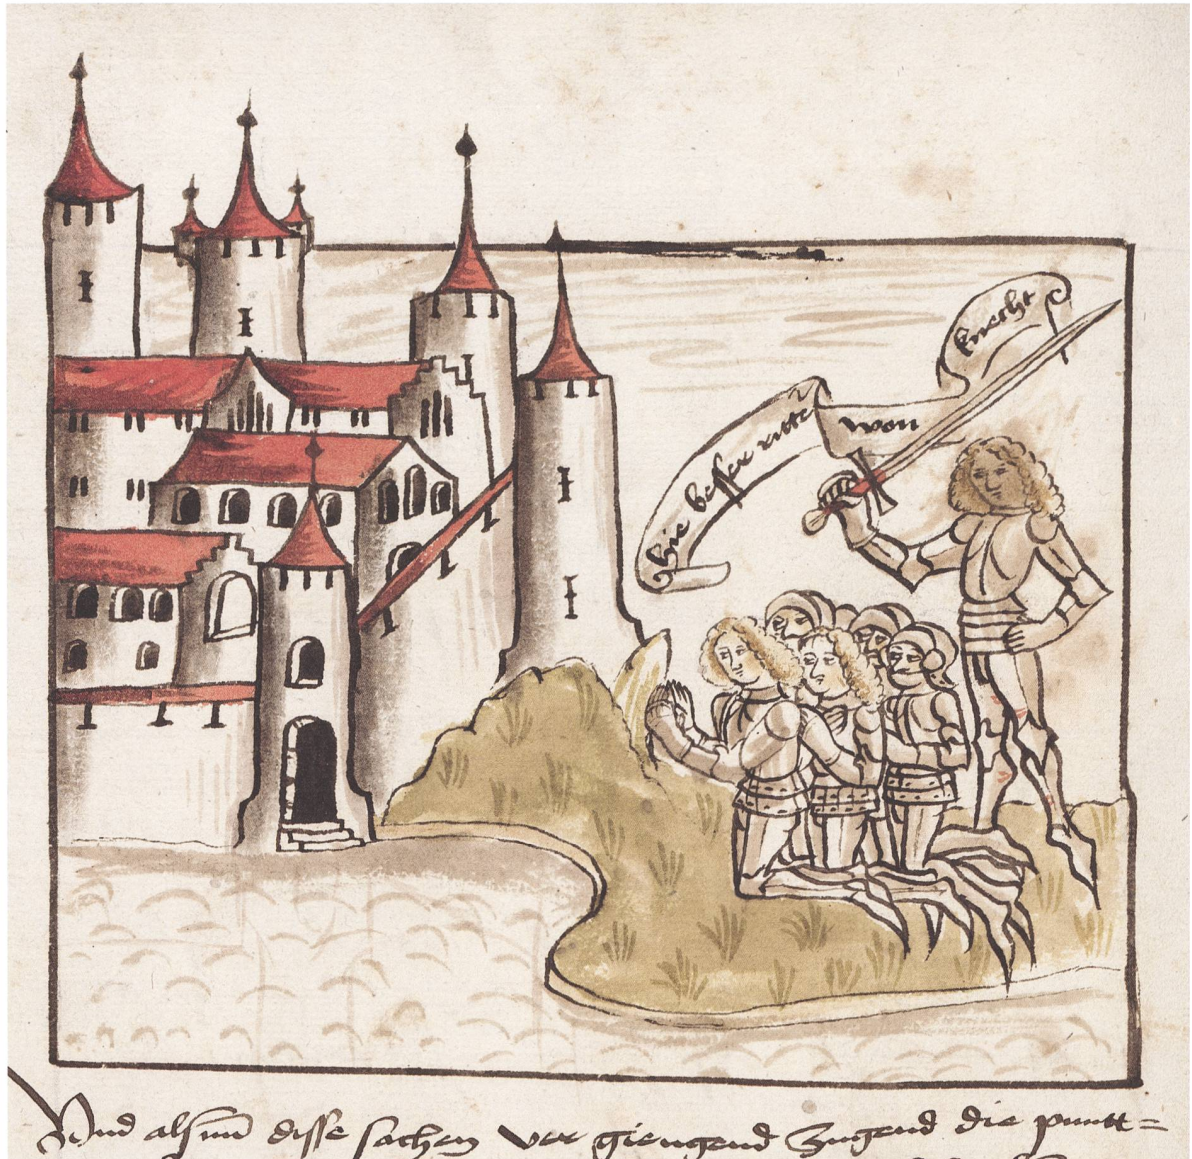 hie besser ritter won knecht
Und als nu disse sachen ver giengend Zugend die puntt=